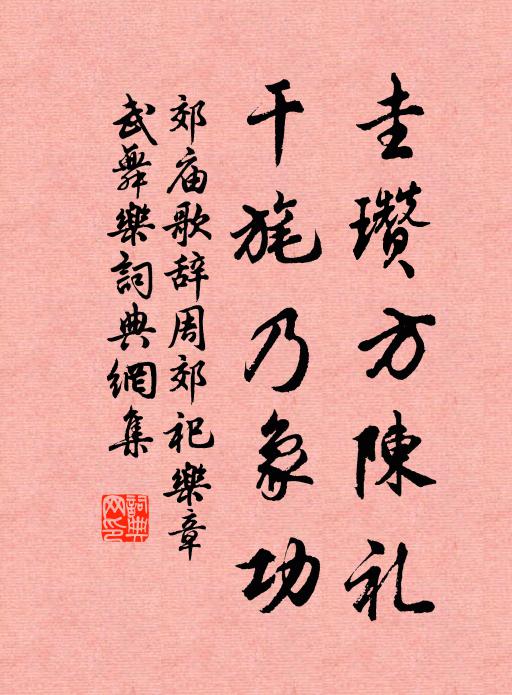 圭瓚方陳礼
干旄乃象功
郊庙歌辞周郊祀樂章
武舞樂詞典網集
詞典网印